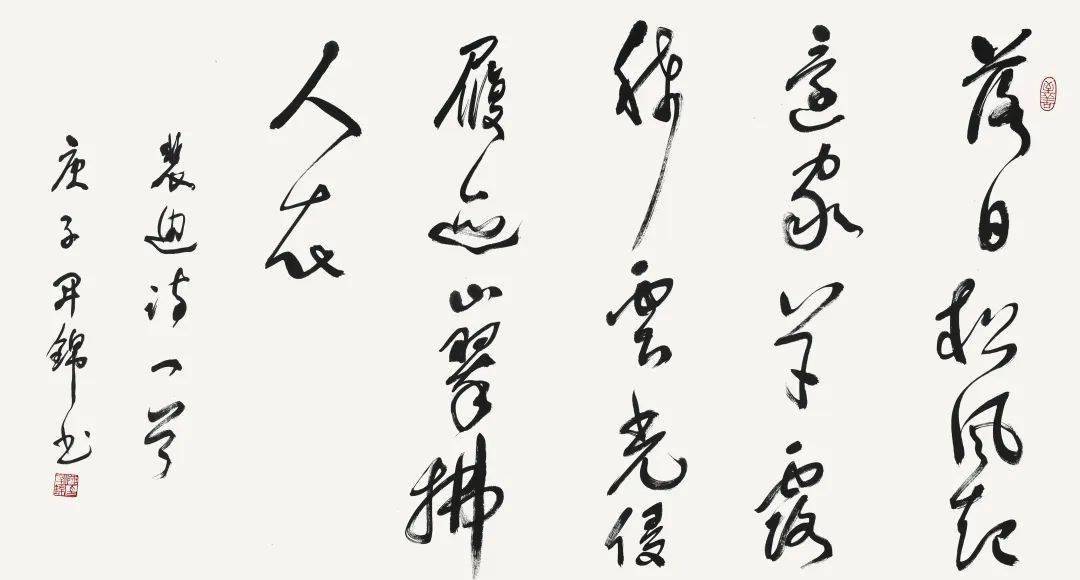 落日松風起
還家草露
晞雲光侵
履迹山翠拂
人衣
裴迪詩一首
庚子錦书